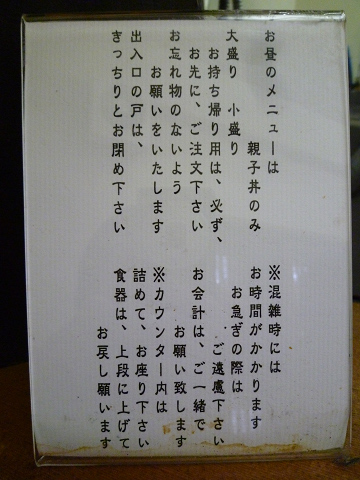 お昼のメニューは
親子丼のみ
大盛り 小盛り
お持ち帰り用は、必ず、
お先に、ご注文下さい
お忘れ物のないよう
お願いをいたします
出入口の戸は、
きっちりとお閉め下さい
※混雑時には
お時間がかかります
お急ぎの際は
ご遠慮下さい
お会計は、ご一緒で
お願い致します
※カウンター内は
詰めて、お座り下さい
食器は、上段に上げて
お戻し願います